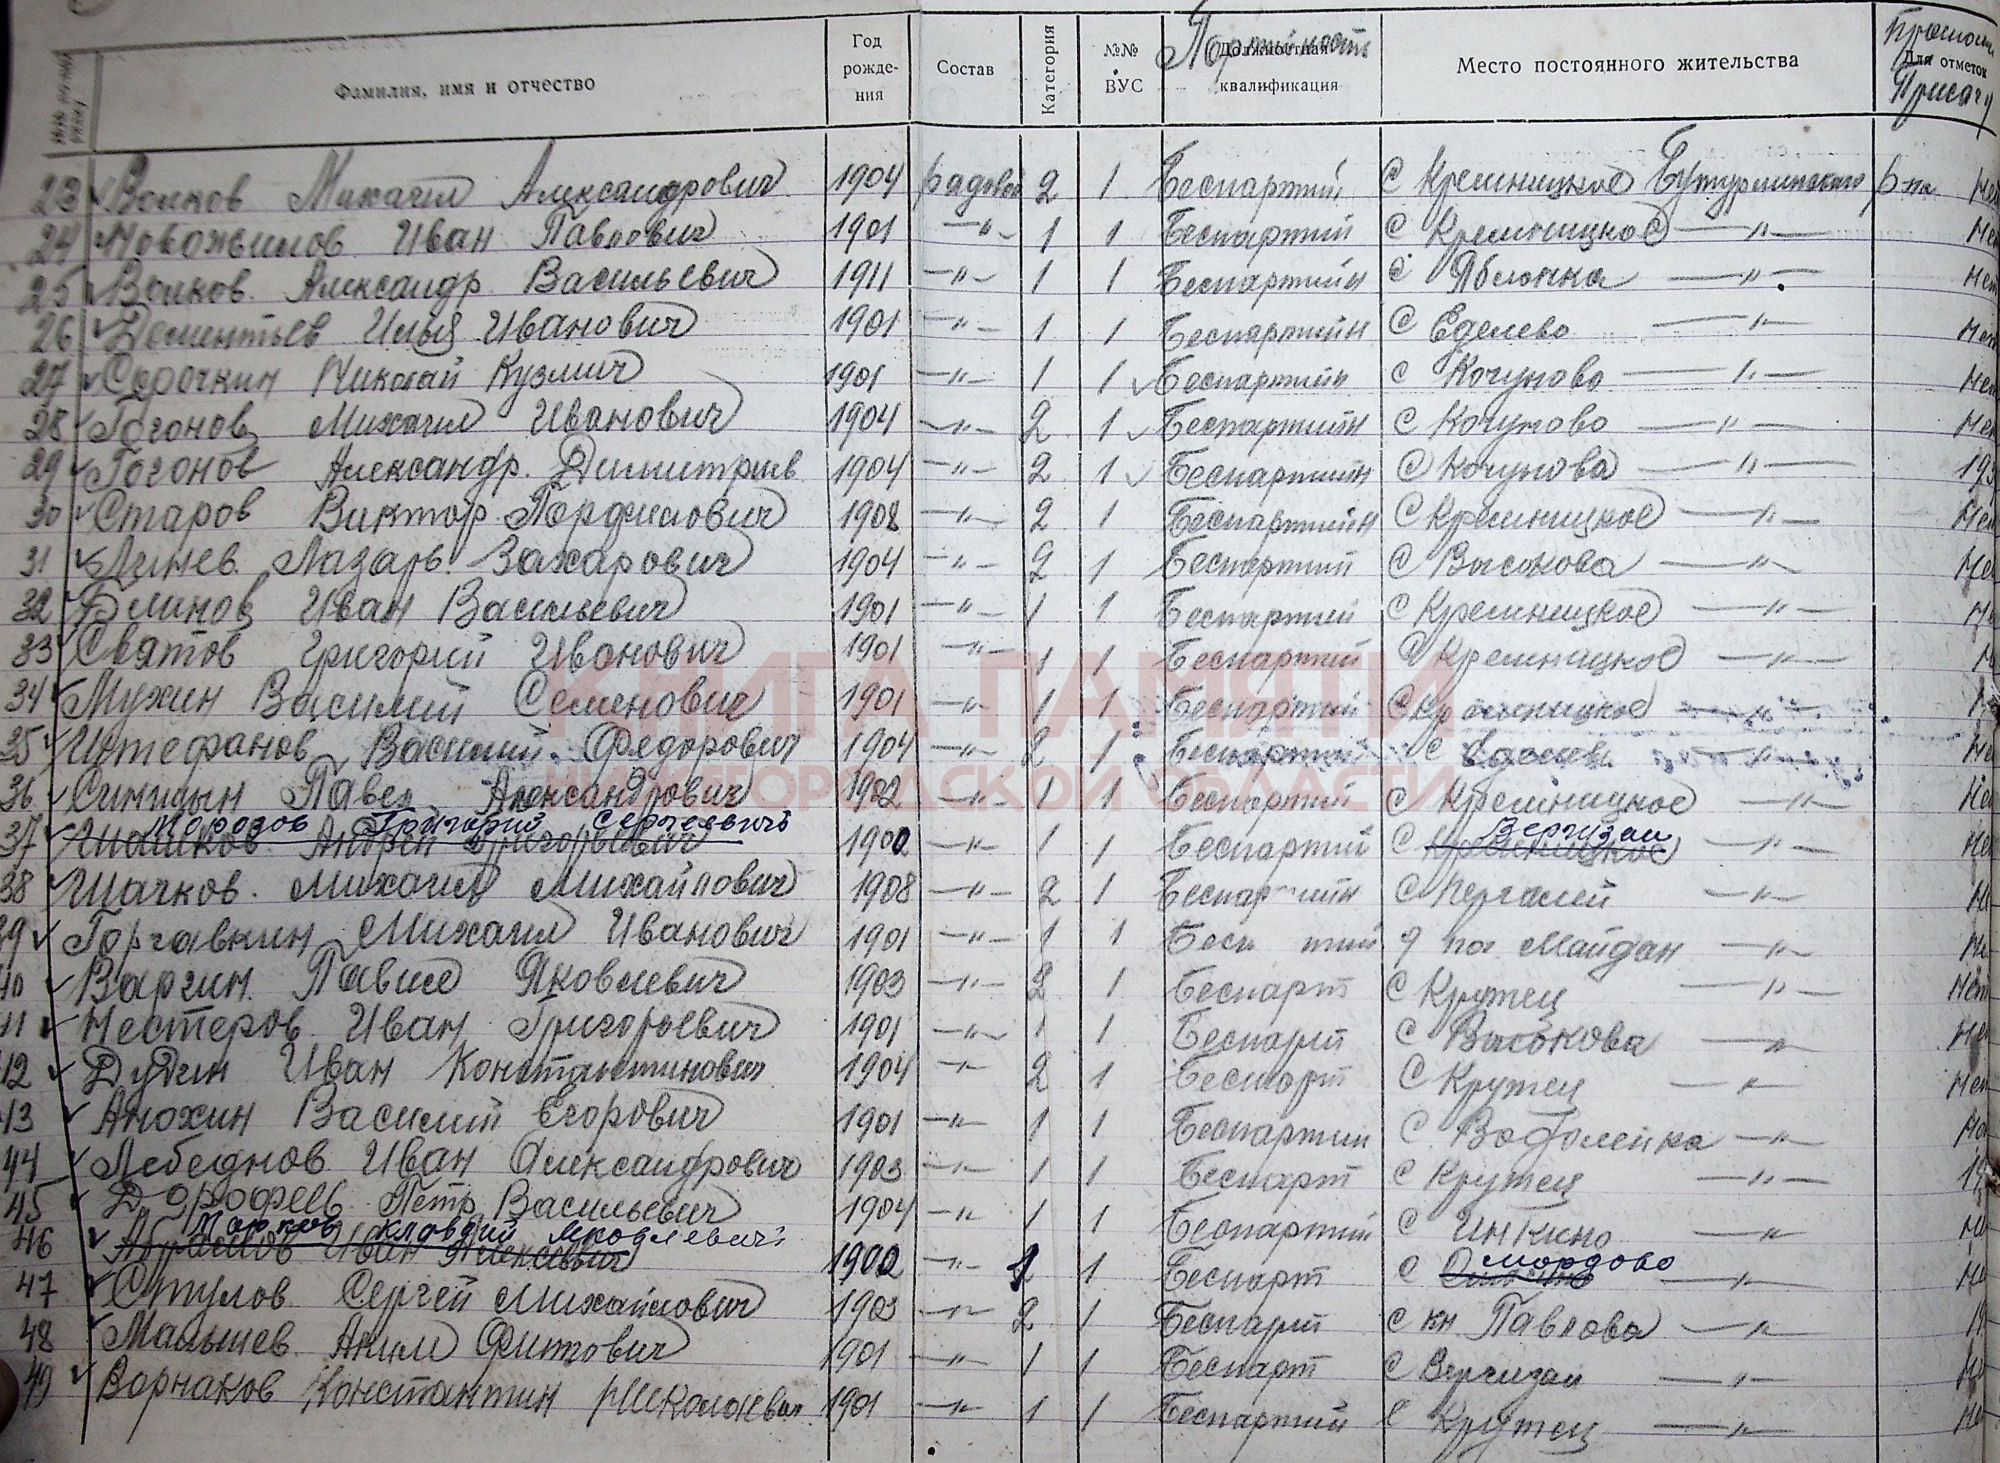 Фамилия, имя и отчество Год рождения Состав Категория №№ ВУС Должностная квалификация Место постоянного жительства Для отметок
Партийность Присягу
23 Волков Михаил Александрович 1904 рядовой 2 1 Беспартий С Кремницкое Бутурлинского р-на
24 Новожилов Иван Павлович 1901 —"— 1 1 Беспартий С Кремницкое —"—
25 Волков Александр Васильевич 1911 —"— 1 1 Беспартийн С Яблонка —"—
26 Дементьев Илья Иванович 1901 —"— 1 1 Беспартийн С Еделево —"—
27 Сорочкин Николай Кузмич 1901 —"— 1 1 Беспартийн С Кочуново —"—
28 Гогонов Михаил Иванович 1904 —"— 2 1 Беспартийн С Кочуново —"—
29 Гогонов Александр Димитриев 1904 —"— 2 1 Беспартийн С Кочунова —"—
30 Старов Виктор Порфилович 1908 —"— 2 1 Беспартийн С Кремницкое —"—
31 Лазарь Захарович 1904 —"— 2 1 Беспартий С —"—
32 Блинов Иван Васильевич 1901 —"— 1 1 Беспартий С Кремницкое —"—
33 Святов Григорий Иванович 1901 —"— 1 1 Беспартий С Кремницкое —"—
КНИГА ПАМЯТИ
34 Мухин Василий Семенович 1901 —"— 1 1 Беспартий С —"—
35 Штефанов Василий Федорович 1904 —"— 2 1 Беспартий С —"—
НИЖЕГОРОДСКОЙ ОБЛАСТИ
36 Синицын Павел Александрович 1902 —"— 1 1 Беспартий С Кремницкое —"—
Морозов Григорий Сергеевич Вергизаи
37 Андрей Григорьевич 1900 —"— 1 1 Беспартий С Кремницкое —"—
38 Шачков Михаил Михайлович 1908 —"— 2 1 С —"—
39 Горчавкин Михаил Иванович 1901 —"— 1 1 Майдан —"—
40 Варгин Павел Яковлевич 1903 —"— 2 1 Беспарт С Кружец —"—
41 Нестеров Иван Григорьевич 1901 —"— 1 1 С —"—
42 Дудин Иван Константинович 1904 —"— 2 1 Беспарт С Кружец —"—
43 Анохин Василий Егорович 1901 —"— 1 1 Беспартий С —"—
44 Лебеднов Иван Александрович 1903 —"— 1 1 Беспарт С Кружец —"—
45 Дорофеев Петр Васильевич 1904 —"— 1 1 Беспартий С Инкино —"—
Марков Клавдий Яковлевич Мордово
46 Абрамов Иван Алексеевич 1900 —"— 1 1 Беспарт С —"—
47 Стулов Сергей Михайлович 1903 —"— 2 1 С кн Павлова —"—
48 Малышев Аким Фитович 1901 —"— 1 1 Беспарт С Вергизаи —"—
49 Ворнаков Константин 1901 —"— 1 1 Беспартий С Кружец —"—